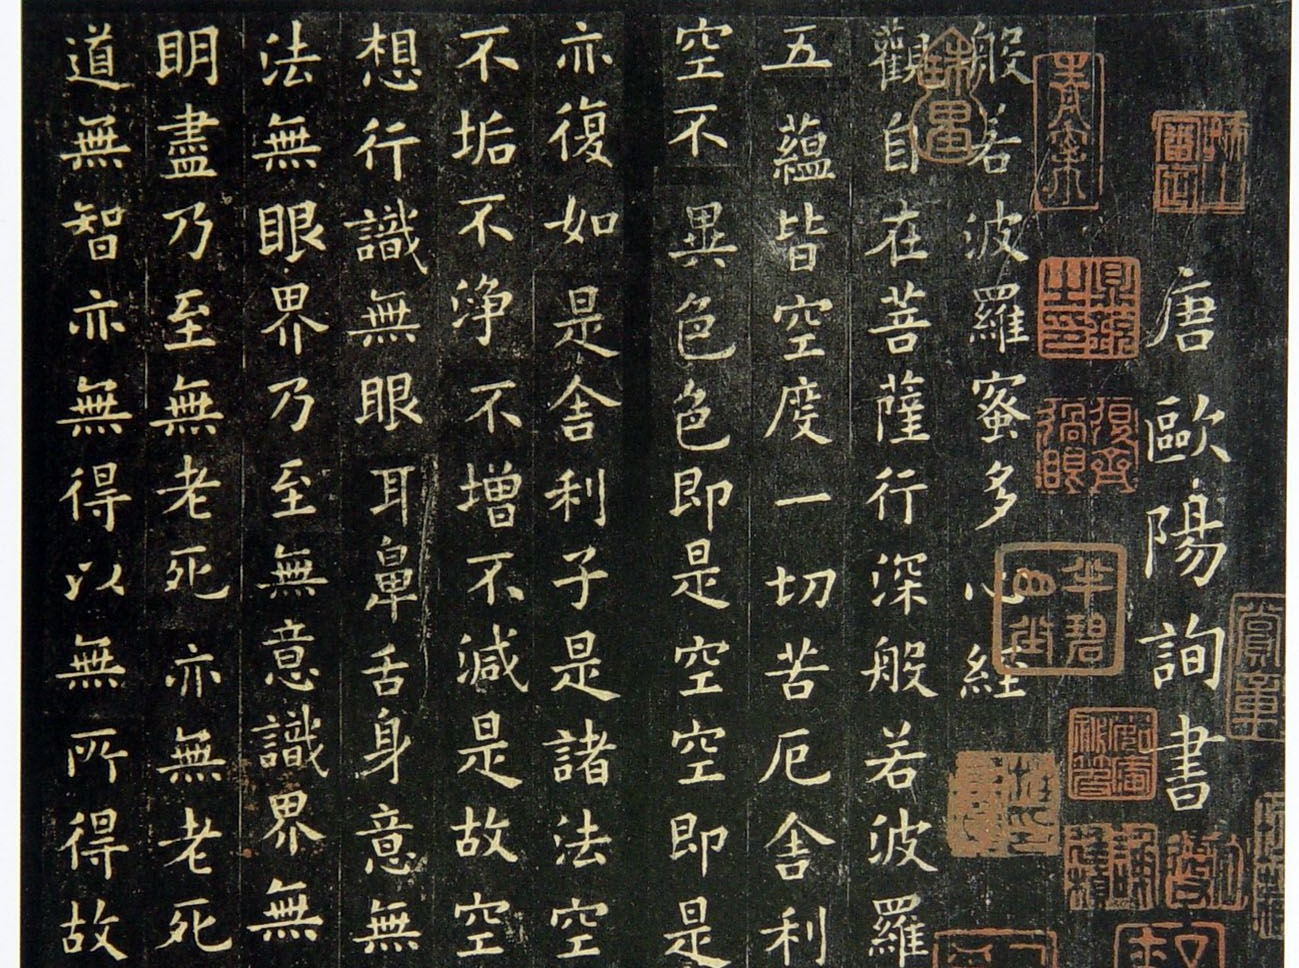 唐歐陽詢書
般若波羅蜜多心經
觀自在菩薩行深般若波羅
五蘊皆空度一切苦厄舍利
空不異色色即是空空即是
亦復如是舍利子是諸法空
不垢不淨不增不減是故空
想行識無眼耳鼻舌身意無
法無眼界乃至無意識界無
明盡乃至無老死亦無老死
道無智亦無得以無所得故